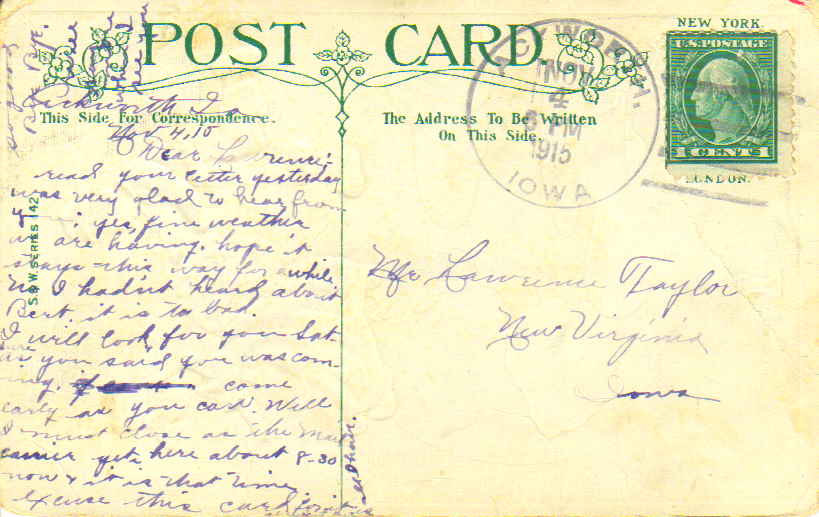 POST CARD.
This Side For Correspondence.
The Address To Be Written
On This Side.
NEW YORK.
U.S. POSTAGE
1 CENTS 1
LONDON.
NOV
4
PM
1915
IOWA
S&W. SERIES 142
Ackworth, Ia
Nov. 4, 15
Dear Lawrence:-
read your letter yesterday
was very glad to hear from
you. yes, fine weather
we are having. hope it
stays this way for awhile.
No I hadn't heard about
Bert. it is to bad.
I will look for you Sat.
as you said you was com-
ing. come
early as you can. Well
I must close as the mail
carrier gets here about 8-30
now & it is that time
excuse this card for it is
all I have.
Bye Bye.
Mr Lawrence Taylor
New Virginia
Iowa